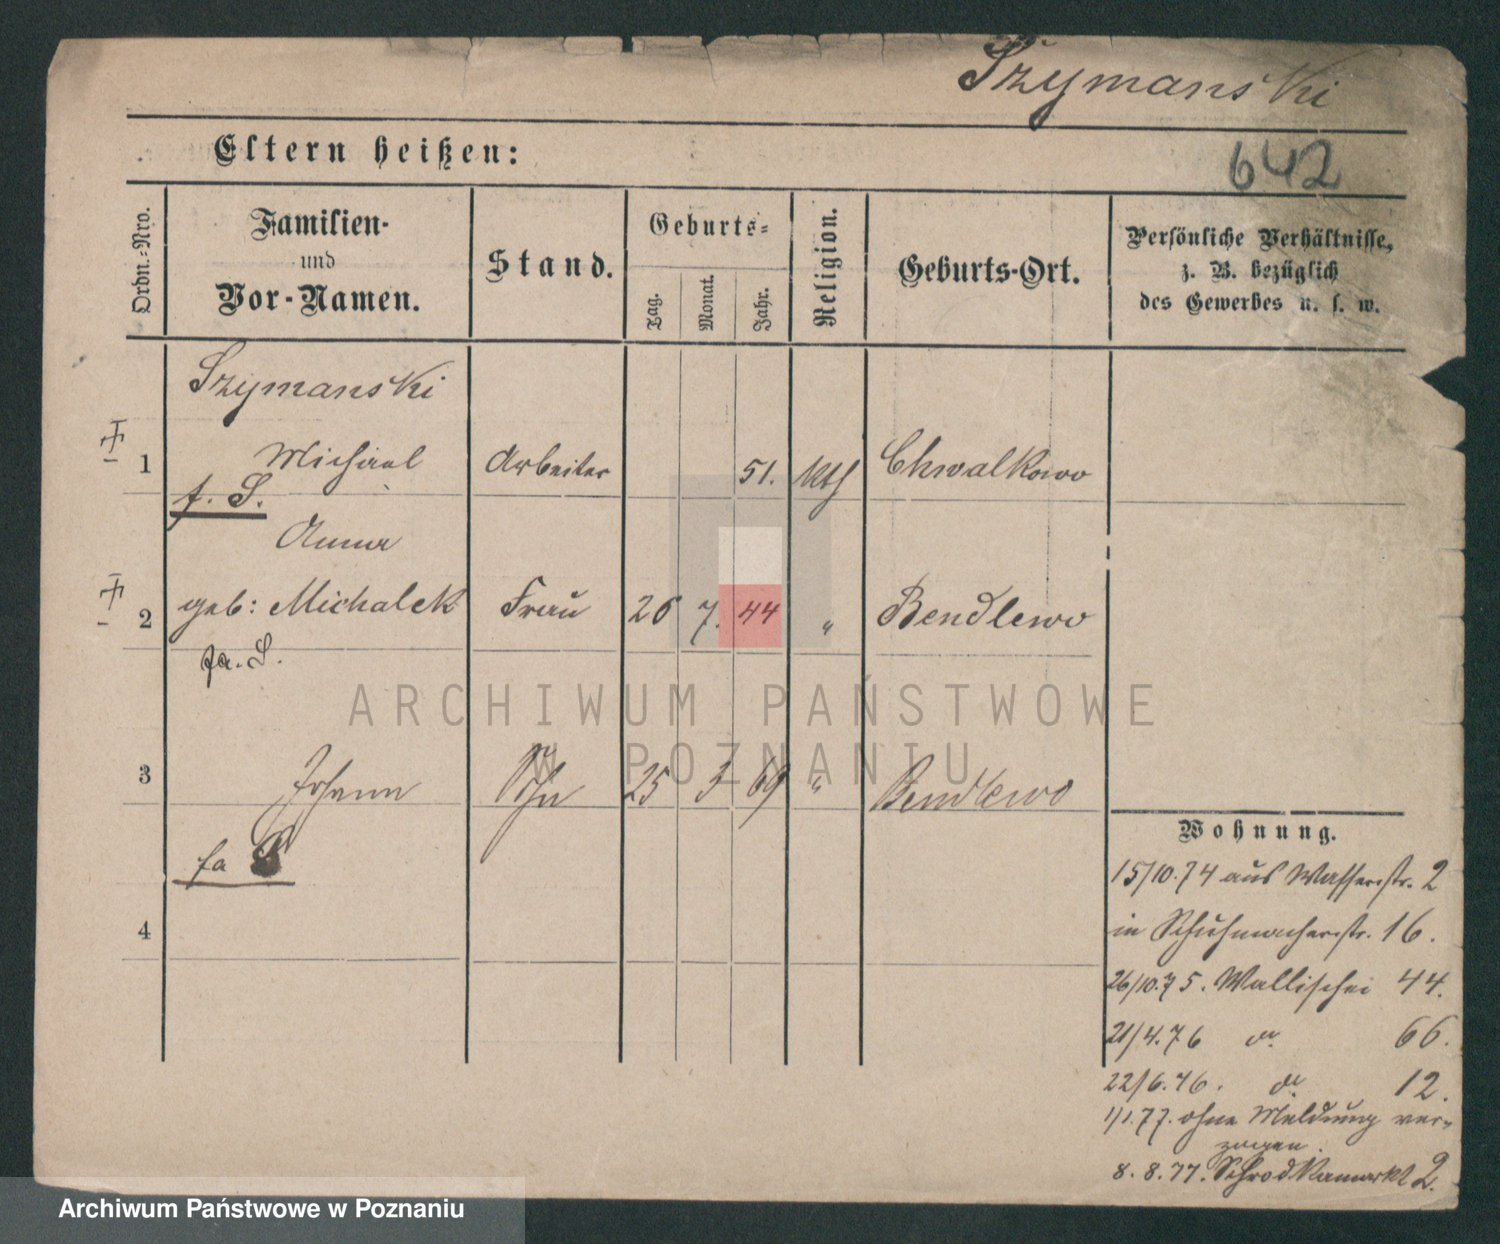 Szymanski
642
Eltern heißen:
Ordn.-Nro.
Familien-
und
Vor-Namen.
Stand.
Geburts-
Tag.
Monat.
Jahr.
Religion.
Geburts-Ort.
Persönliche Verhältnisse,
z. B. bezüglich
des Gewerbes u. s. w.
Szymanski
1 Michael Arbeiter 51. kth Chwalkowo
f. S.
Anna
2 geb: Michalek Frau 26 7. 44 " Bendlewo
fa. S.
3 Johann Sohn 25 3 69 " Bendlewo
fa S
4
Wohnung.
15/10.74 aus Wasserstr. 2
in Schuhmacherstr. 16.
26/10.75. Wallischei 44.
21/4.76 do 66.
22/6.76. do 12.
1/1.77. ohne Meldung ver-
zogen.
8.8.77. Schrodkamarkt 2.
ARCHIWUM PAŃSTWOWE
W POZNANIU
Archiwum Państwowe w Poznaniu